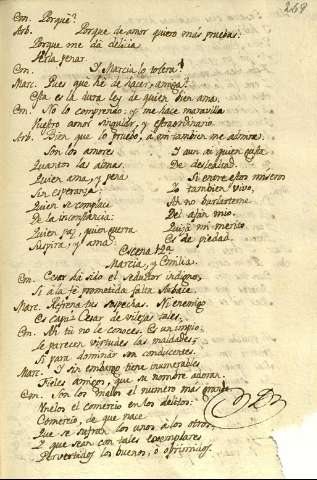 269
Em. Porquè?
Arb. Porque de amor quiero más pruebas:
Porque me da delicia
Verla penar.
Em. Y Marcia lo tolera?
Marc. Pues qué hé de hacer, amiga?
Esta es la dura ley de quien bien ama.
Em. No lo comprendo: y me hace maravilla
Vuestro amor singular, y extraordinario.
Arb. Bien que lo pruebo, a mi tambien me admira.
Son los amores
Quantas las almas.
Quien ama, y pena
Sin esperanza:
Quien se complace
De la inconstancia:
Quien paz, quien guerra
Suspira, y ama.
Y aun ai quien gusta
De deslealtad.
Si entre estos mísero
Yo tambien vivo,
Ah no burlarteme
Del afán mio.
Quizá mi merito
Es de piedad.
Escena 12ª
Marcia, y Emilia.
Em. Cesar dá sido el seductor indigno,
Si á la fé prometida falta Arbace.
Marc. Refrena tus sospechas. Ni enemigo
Es capáz Cesar de vilezas tales.
Em. Ah tú no le conoces. Es un impío:
Le parecen virtudes las maldades,
Si para dominar son conducentes.
Marc. Y sin embargo tiene inumerables
Fieles amigos, que su nombre adoran.
Em. Son los malos el número más grande
Únelos el comercio en los delitos:
Comercio, de que nace
Que se sufran los unos á los otros,
Y que sean con tales exemplares
Pervertidos los buenos, ú oprimidos.